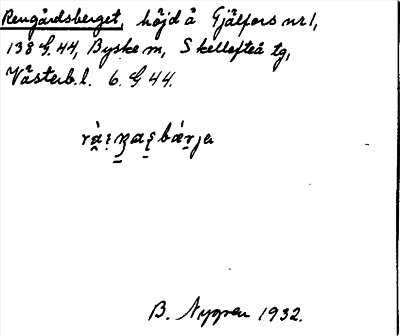 Rengårdsberget, höjd å Gjälfors nr 1,
138 G. 44, Byske m, Skellefteå tg,
Västerb. l. 6. G 44.
B. Nygren 1932.